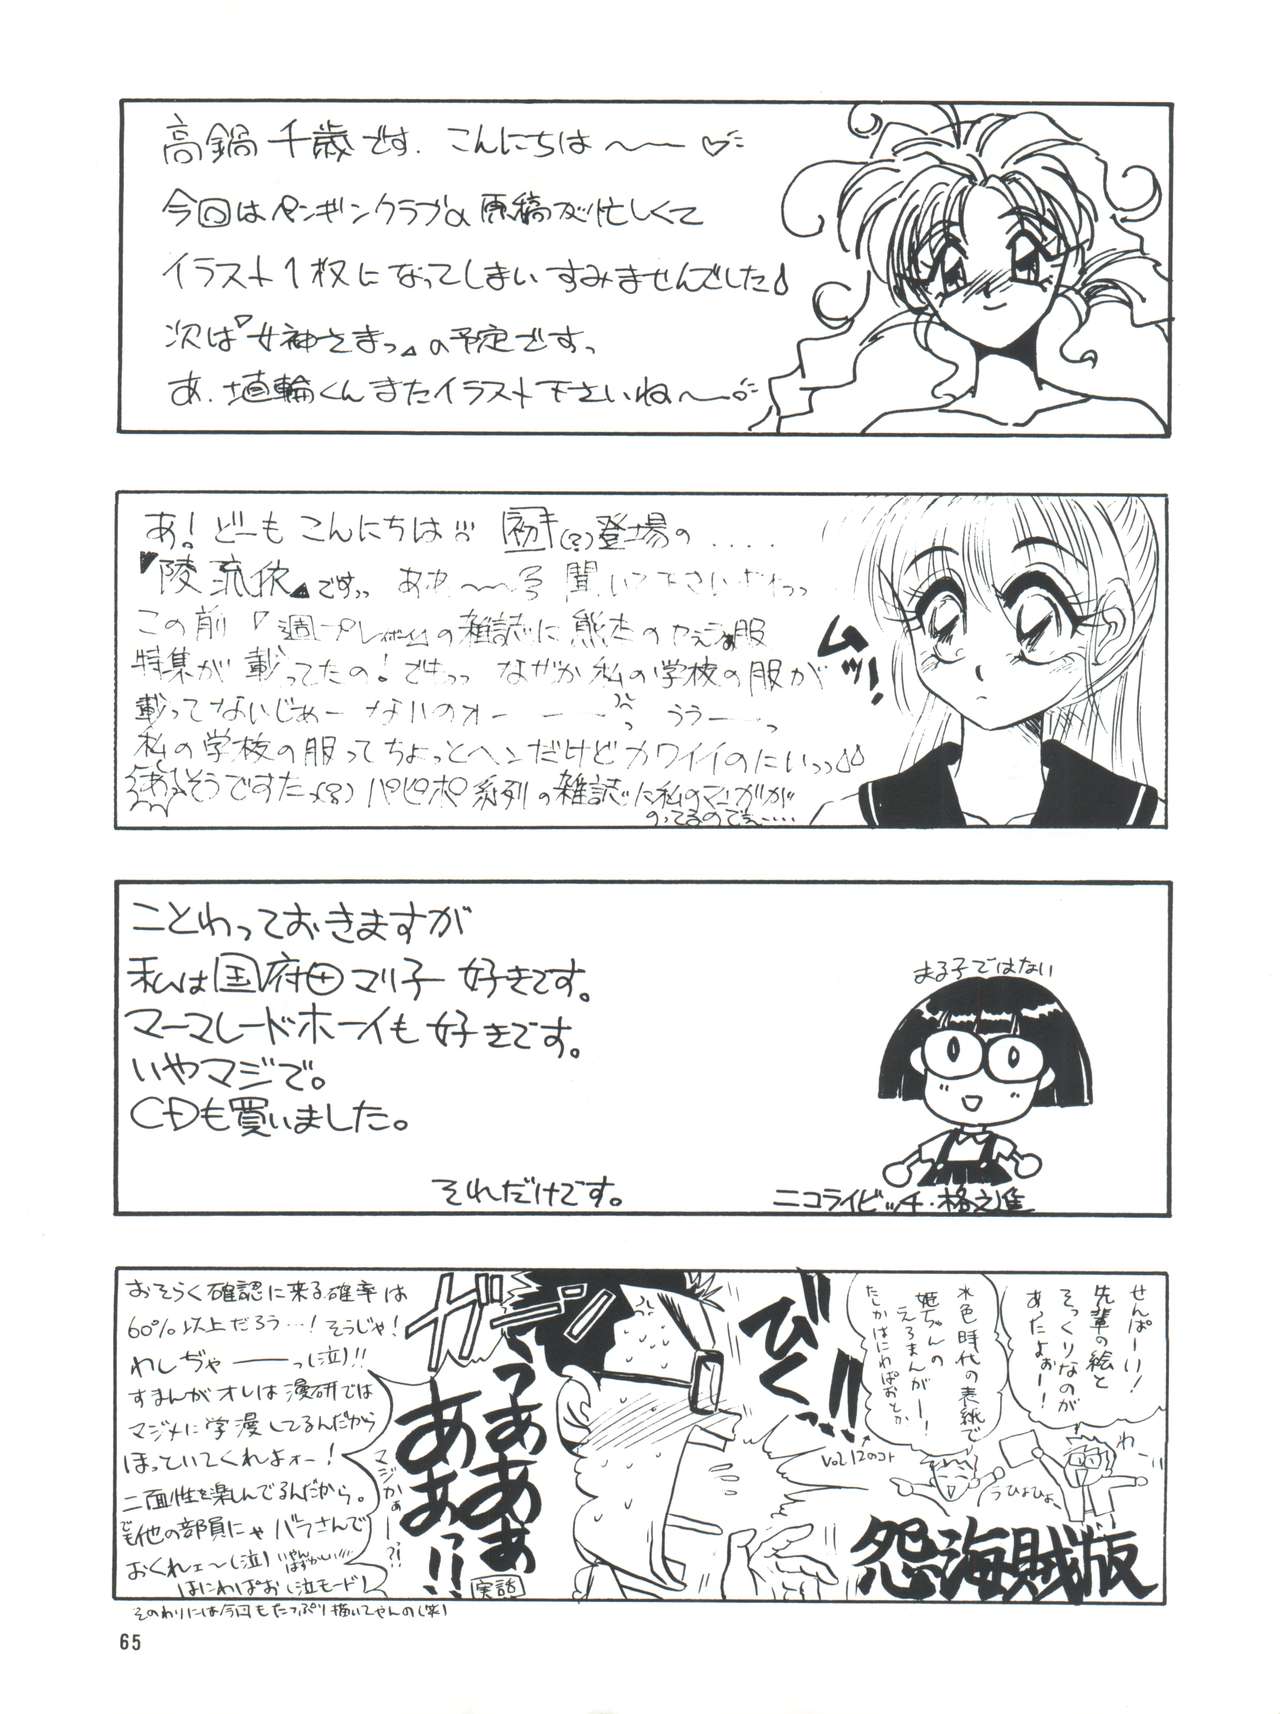 高鍋千歳です. こんにちは〜〜♡
今回はペンギンクラブの原稿が忙しくて
イラスト1枚になってしまいすみませんでした♪
次は『女神さまっ』の予定ですっ
あ. 埴輪くんまたイラスト下さいね〜〜
あ!どーもこんにちは 初(?)登場の....
『陵流依』ですっ 聞いて下さい
この前『週プレイボーイ』の雑誌に熊本の服
特集が載ってたの!でもっっ なぜか私の学校の服が
載ってないじめーないのオーーー ううーーっ
私の学校の服ってちょっとヘンだけどカワイイのにいっっ♪♪
あっそうですた パピポ系列の雑誌に私のマンガが
のってるのでぇ....
ムッ!
ことわっておきますが
私は国府田マリ子好きです。
マーマレードボーイも好きです。
いやマジで。
CDも買いました。
それだけです。
まる子ではない
ニコライビッチ・格之進
せんぱーい!
先輩の絵と
そっくりなのが
あったよぉー!
わー
水色時代の表紙で
姫ちゃんの
えろまんがー!
たしかはにわぱおとか
Vol.12のコト
うひょひょー
怨海賊版
びくっ!!
ガーン
うぁぁあぁ
あぁぁっ!!
実話
マジかぁーーっ?!
おそらく確認に来る確率は
60%以上だろう…!そうじゃ!
わしぢゃーーーっ(泣)!!
すまんがオレは漫研では
マジメに学漫してるんだから
ほっていてくれよォー!
二面性を楽しんでるんだから。
でも他の部員にゃバラさんで
おくれェ〜(泣) いやんはずかしい!!!
はにわぱお(泣モード)
そのわりには今回もたっぷり描いてやんの(笑)
65